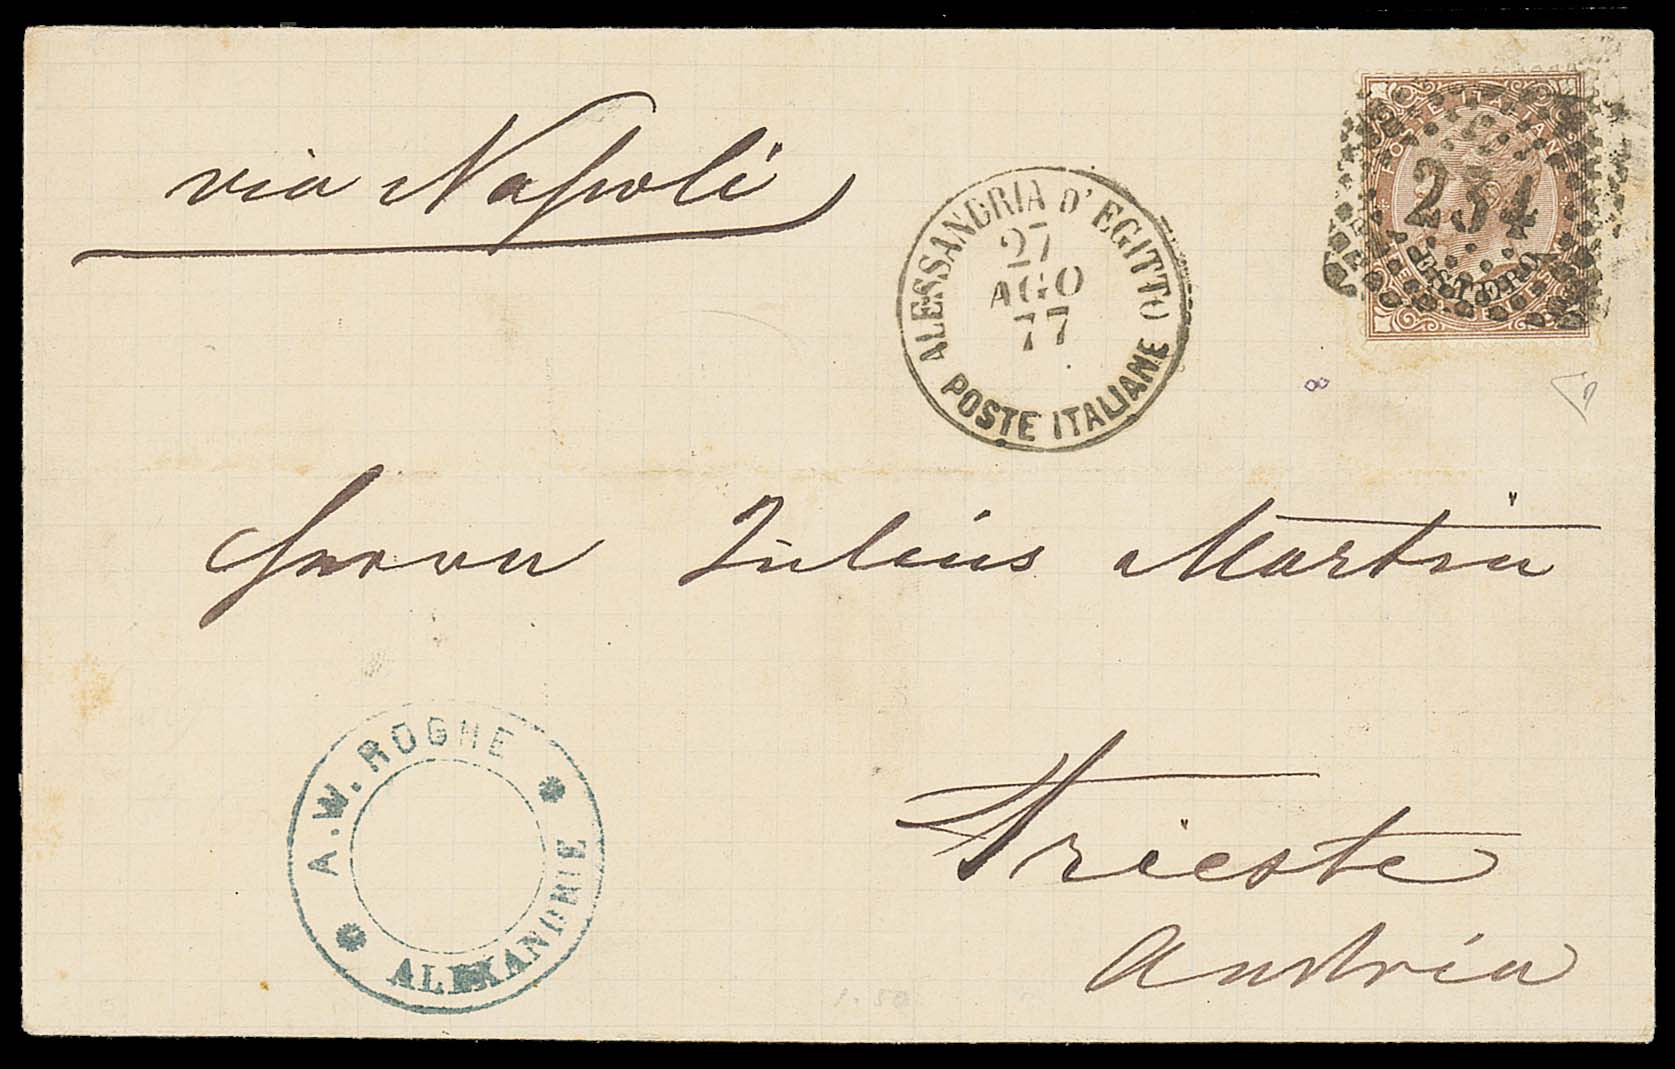 via Napoli
ALESSANDRIA D'EGITTO
27
AGO
77
POSTE ITALIANE
234
ESTERO
Herrn Julius Martin
A. W. ROGHE
ALEXANDRIE
Trieste
Austria